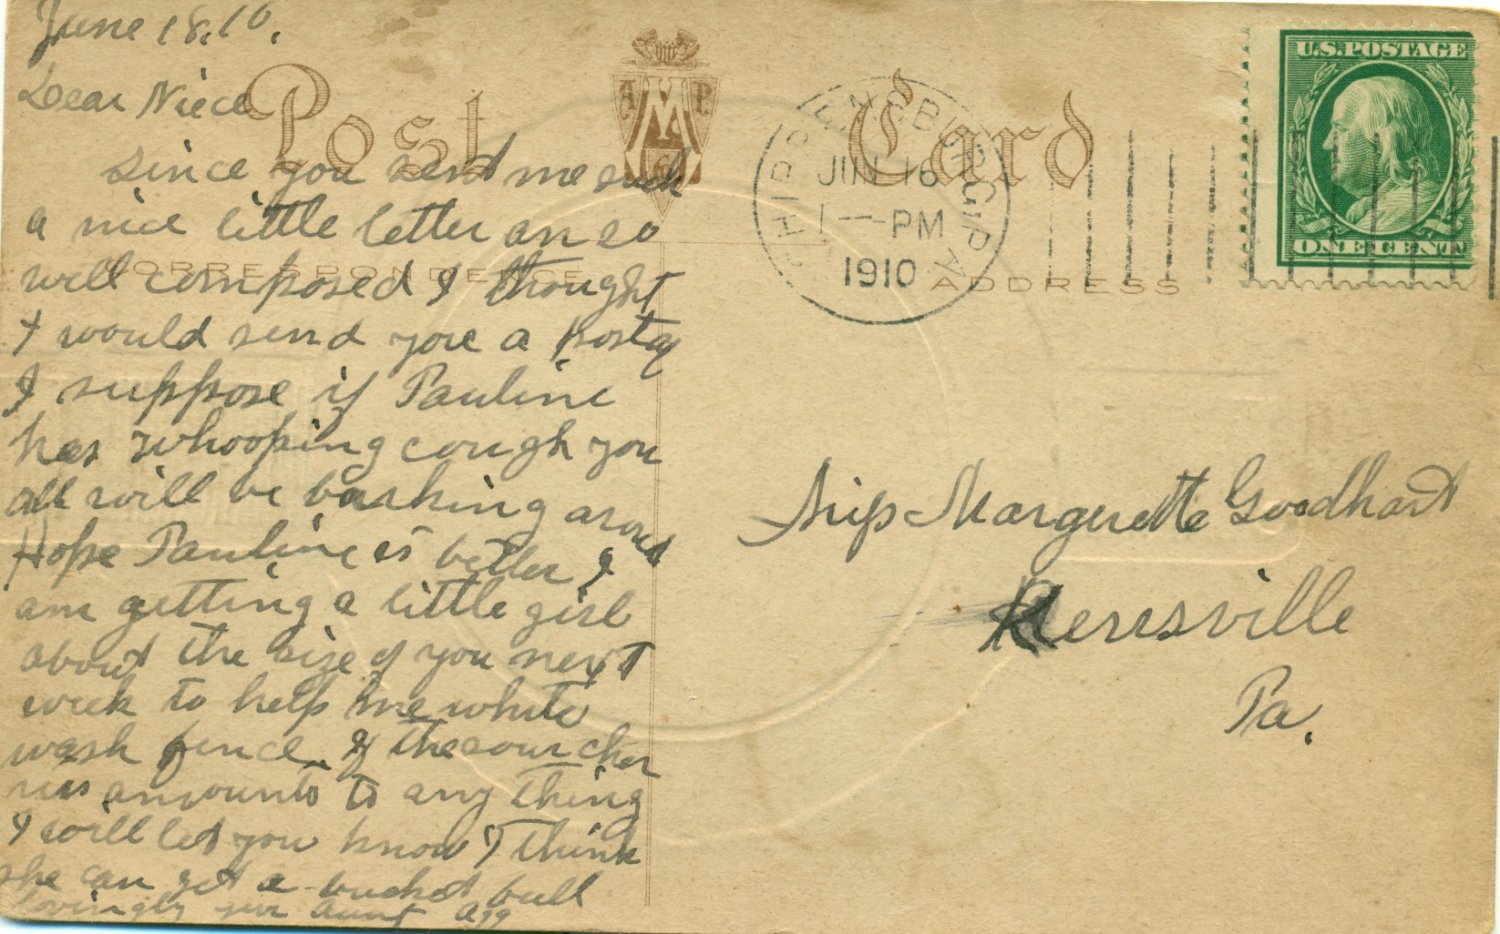 June 18.10.
Dear Niece
Post Card
A M P
since you send me such
a nice little letter an so
well composed I thought
CORRESPONDENCE
I would send you a postq
I suppose if Pauline
has whooping cough you
all will be barking around
Hope Pauline is better I
am getting a little girl
about the size of you next
week to help me white
wash fence, If the sour cher
ries amounts to any thing
I will let you know I think
she can get a bucket full
Lovingly your aunt Agg
SHIPPENSBURG, PA
JUN 16
1—PM
1910
ADDRESS
U.S. POSTAGE
ONE CENT
Miss Marguerette Goodhart
Reresville
Pa.